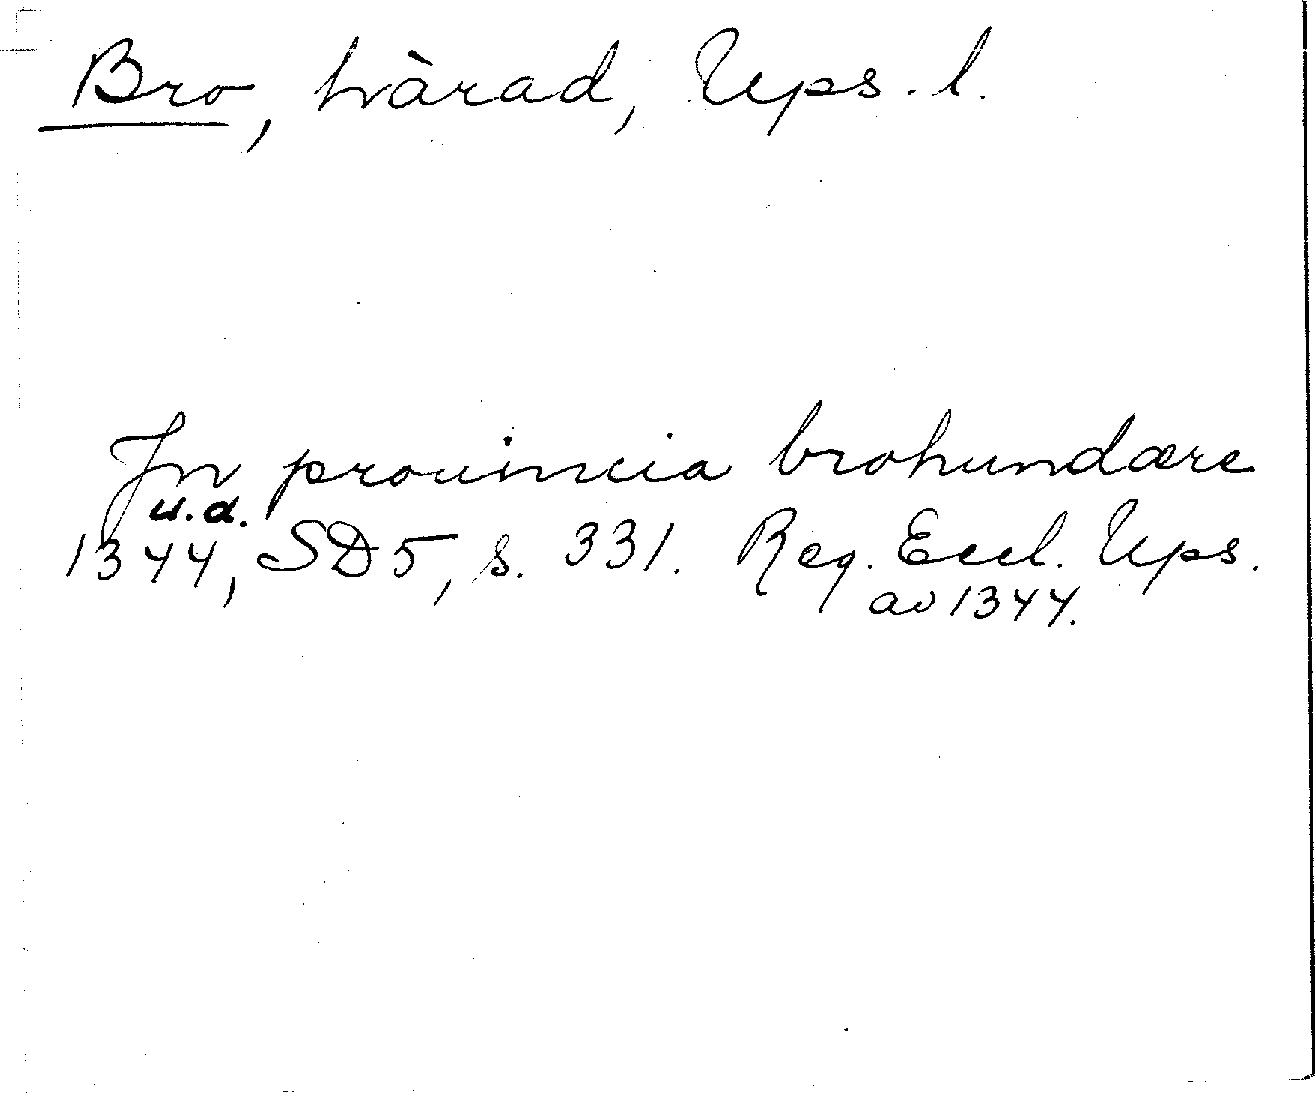 Bro, härad, Ups. l.
In prouincia brohundære
u.d.
1344, SD5, s. 331. Reg. Eccl. Ups.
av 1344.